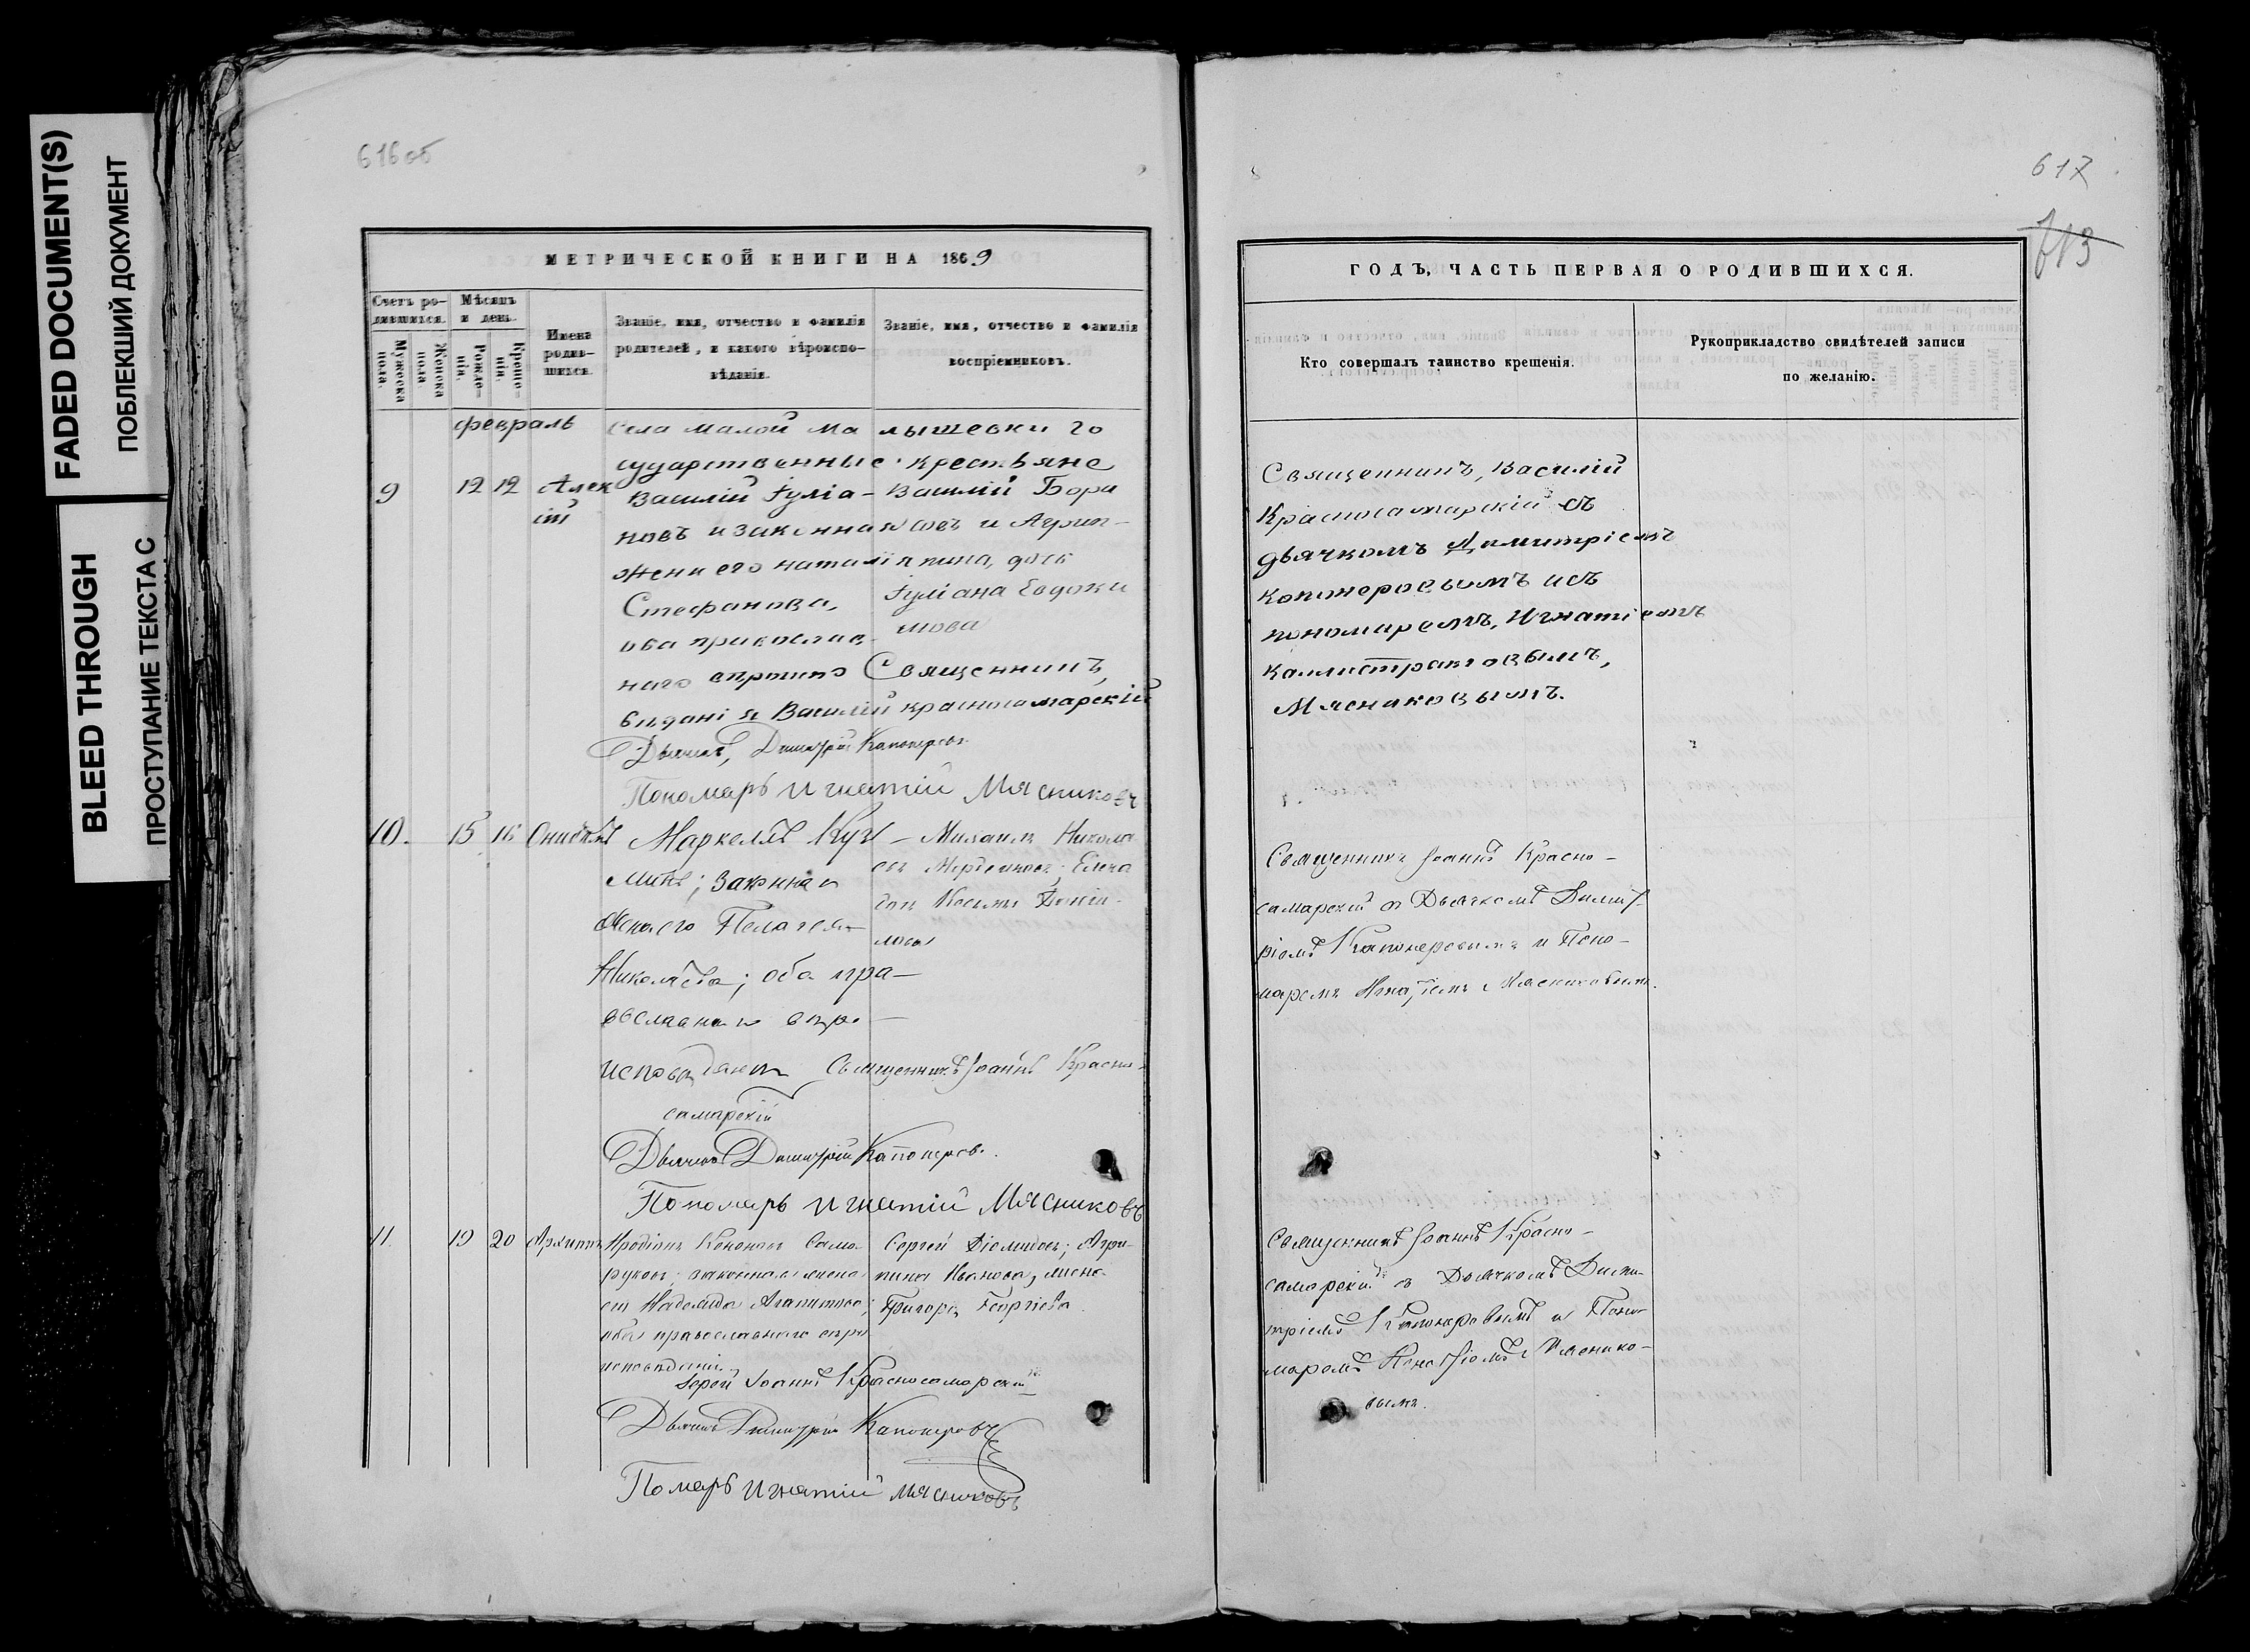 FADED DOCUMENT(S)
ПОБЛЕКШИЙ ДОКУМЕНТ
BLEED THROUGH
ПРОСТУПАНИЕ ТЕКСТА С
616об
МЕТРИЧЕСКОЙ КНИГИ НА 1869
Счетъ ро-
дившихся.
Мужеска
пола.
Женска
пола.
Мѣсяцъ
и день.
Рожде-
нія.
Креще-
нія.
Имена
родив-
шихся.
Званіе, имя, отчество и фамилія
родителей, и какого вѣроиспо-
вѣданія.
Званіе, имя, отчество и фамилія
воспріемниковъ.
февраль
села малой Ма лышевки го
сударственные крестьяне
9 12 12 Алек
сій
Василій Іуліа-
новъ и законная
жена его Наталія
Стефанова,
оба православ-
наго
Василій Бори
совъ и Агрип-
пина, дочь
Іуліана Евдоки
мова
Священникъ,
Василій Красносамарскій
Дьячекъ, Димитрій Капонеровъ
Пономарь Игнатій Мясниковъ
10. 15 16
Маркеллъ Куз-
минъ; законная
жена его Пелагея
Николаева; оба пра-
Михаилъ Никола
евъ Елена
Священникъ Іоаннъ Красно-
самарскій
Дьячекъ Димитрій Капонеровъ.
Пономарь Игнатій Мясниковъ
11. 19 20 Архиппъ
законная жена
его Надежда
оба православнаго
исповѣданія
Сергей Діомидовъ; Агри-
пина Иванова, жена
Григорія Георгіева.
Іерей Іоаннъ Красносамарскій
Дьячекъ Димитрій Капонеровъ
Помарь Игнатій Мясниковъ
617
713
ГОДЪ, ЧАСТЬ ПЕРВАЯ О РОДИВШИХСЯ.
Кто совершалъ таинство крещенія.
Рукоприкладство свидѣтелей записи
по желанію.
Священникъ, Василій
Красносамарскій съ
дьячкомъ Димитріемъ
Капонеровымъ и съ
пономаремъ, Игнатіемъ
Каллистратовымъ,
Мясниковымъ.
Священникъ Іоаннъ Красно-
самарскій съ Дьячкомъ Димит-
ріемъ Капонеровымъ и Поно-
маремъ Игнатіемъ Мясниковым.
Священникъ Іоаннъ Красно-
самарскій съ Дьячкомъ Дими-
тріемъ Капонеровымъ и Поно-
маремъ Игнатіемъ Мяснико-
вымъ.